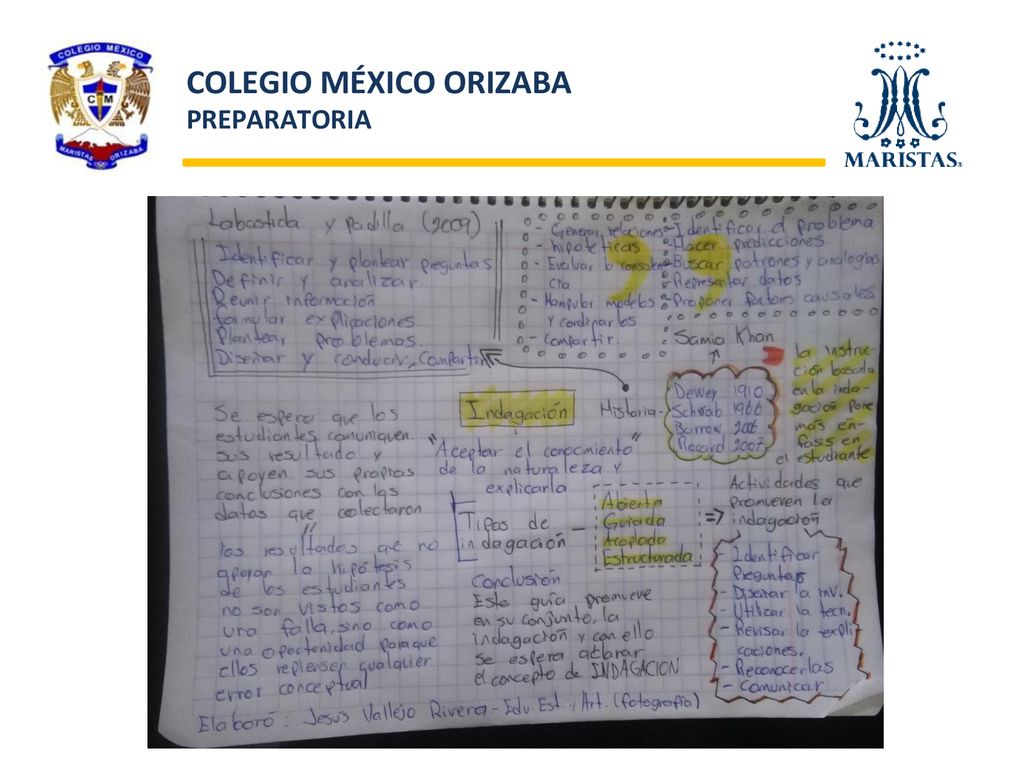 COLEGIO MEXICO
C M
MARISTAS ORIZABA
COLEGIO MÉXICO ORIZABA
PREPARATORIA
MARISTAS®
Labastida y Padilla (2009)
Identificar y plantear preguntas
Definir y analizar
Reunir información
formular explicaciones.
Plantear problemas.
Diseñar y conducir, Compartir
- Generar relaciones
- hipotéticas
- Evaluar la consisten
cia
- Manipular modelos
y coordinarlos
- Compartir.
- Identificar el problema
- Hacer predicciones.
- Buscar patrones y analogías
- Representar datos
- Proponer factores causales
Samia Khan
Dewey 1910
Schwab 1966
Barrow 2006
Rocard 2007
Historia-
la instruc-
ción basada
en la inda-
gación pone
más én-
fasis en
el estudiante
Indagación
"Aceptar el conocimiento"
de la naturaleza y
explicarla
Se espera que los
estudiantes comuniquen
sus resultado y
apoyen sus propias
conclusiones con los
datos que colectaron
//
los resultados que no
apoyan la hipótesis
de los estudiantes
no son vistos como
una falla, sino como
una oportunidad para que
ellos replensen cualquier
error conceptual
Tipos de
indagación
-
Abierta
Guiada
Acoplada
Estructurada
=>
Actividades que
promueven la
indagación
- Identificar
Preguntas
- Diseñar la inv.
- Utilizar la tecn.
- Revisar la expli
caciones.
- Reconocerlas
- Comunicar
Conclusión
Este guía promueve
en su conjunto, la
indagación y con ello
se espera aclarar
el concepto de INDAGACION
Elaboró: Jesus Vallejo Rivera - Edu. Est. y Art. (fotografía)